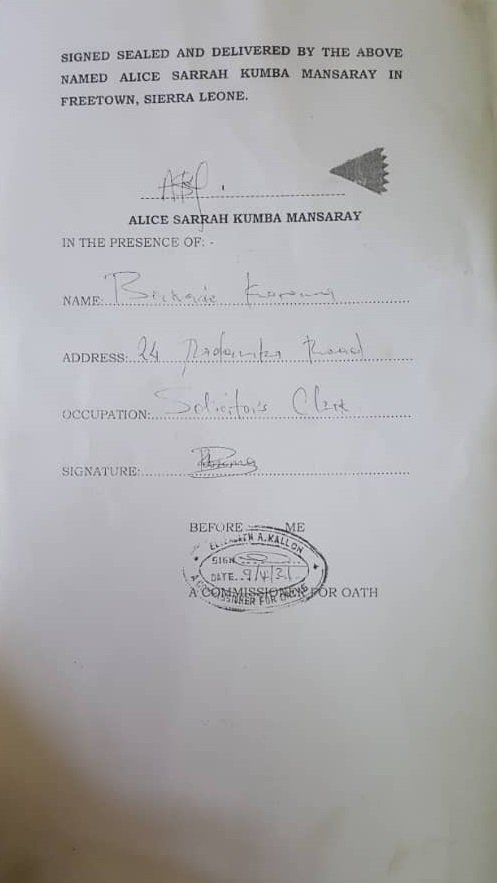 SIGNED SEALED AND DELIVERED BY THE ABOVE
NAMED ALICE SARRAH KUMBA MANSARAY IN
FREETOWN, SIERRA LEONE.
ALICE SARRAH KUMBA MANSARAY
IN THE PRESENCE OF: -
NAME:
ADDRESS: 24 Road
OCCUPATION: Solicitor's Clerk
SIGNATURE:
BEFORE ME
ELIZABETH A. KALLON
SIGN
DATE 9/4/21
A COMMISSIONER FOR OATHS
A COMMISSIONER FOR OATH